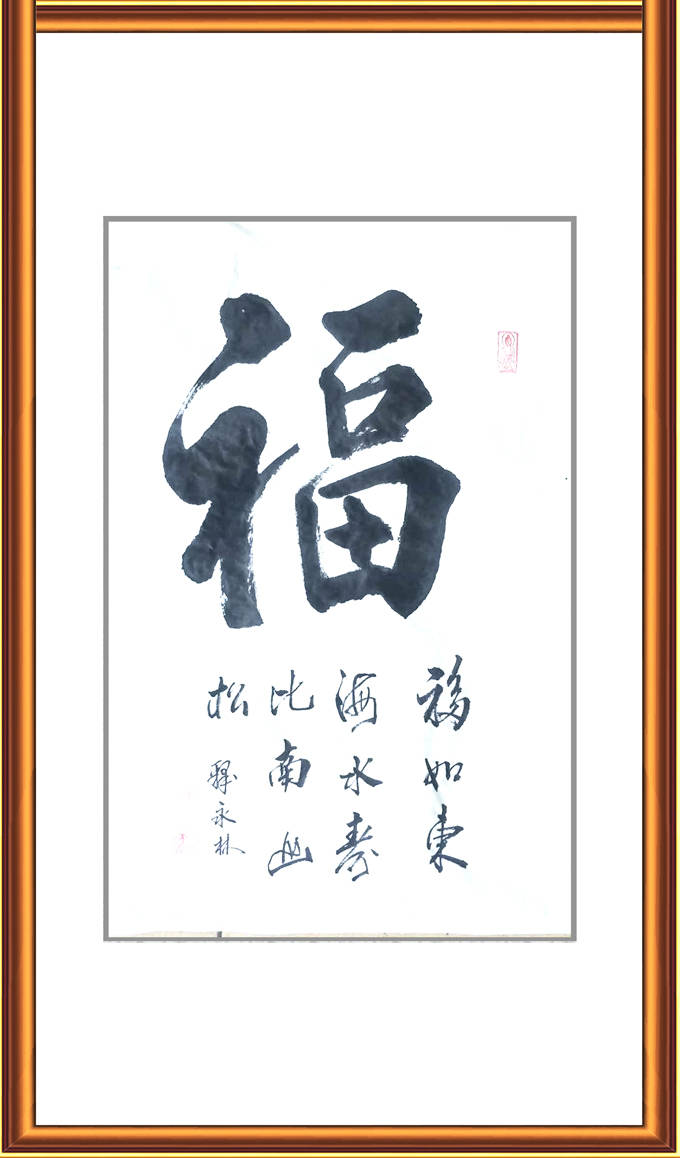 福
福如東
海水壽
比南山
松
釋永林